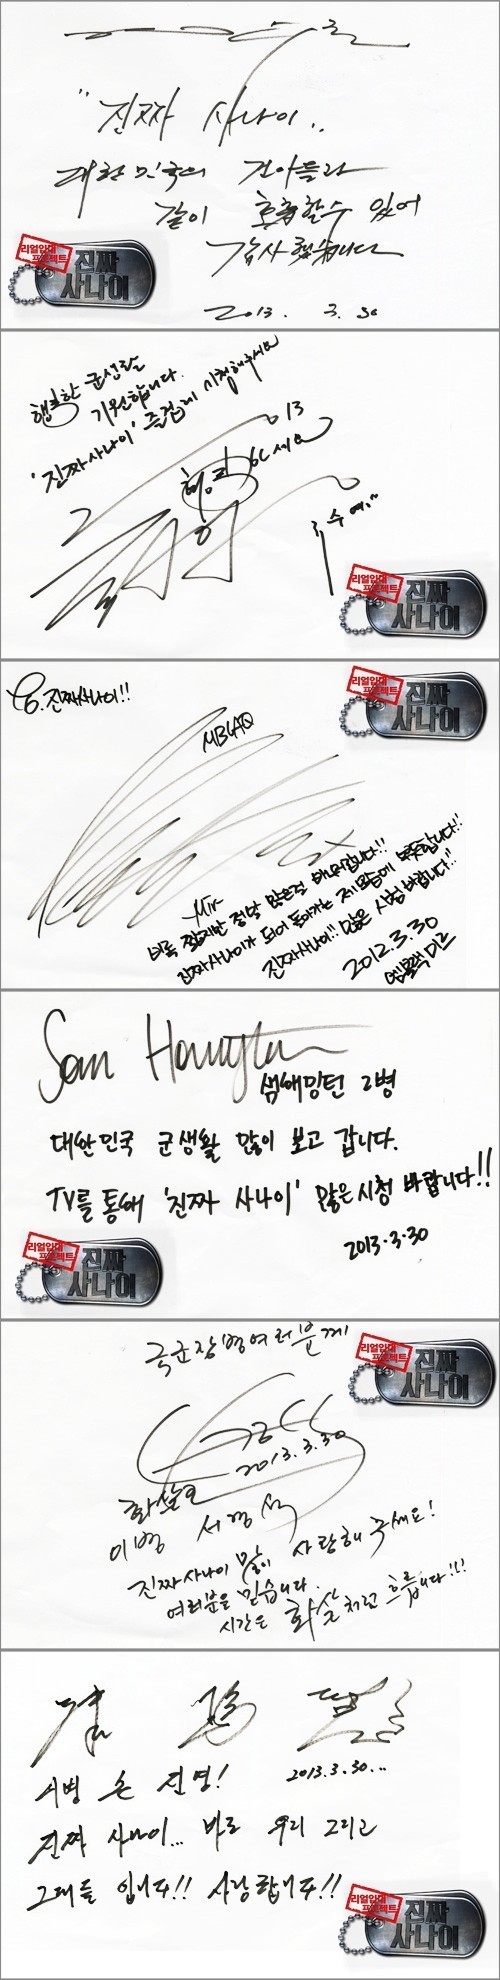 "진짜 사나이..
대한민국의 건아들과
같이 호흡할수 있어
감사했습니다
2013. 3. 30
리얼입대
프로젝트
진짜
사나이
행복한 군생활
기원합니다.
'진짜 사나이' 즐겁게 시청해주세요
2013
리얼입대
프로젝트
진짜
사나이
To. 진짜사나이!!
MBLAQ
리얼입대
프로젝트
진짜
사나이
Mir
비록 짧지만 정말 많은걸 배워갑니다!!
진짜사나이가 되어 돌아가는 제모습에 뿌듯합니다!!
진짜사나이!! 많은 시청 바랍니다!!
2012.3.30
엠블랙 미르
Sam Hammington
샘해밍턴 2병
대한민국 군생활 많이 보고 갑니다.
TV를 통해 '진짜 사나이' 많은 시청 바랍니다!!
2013.3.30
리얼입대
프로젝트
진짜
사나이
국군장병여러분께
리얼입대
프로젝트
진짜
사나이
2013.3.30
이병 서경석
진짜사나이 많이 사랑해 주세요!
여러분을 믿습니다.
시간은 화살처럼 흐릅니다!!!
2013.3.30...
진짜 사나이... 바로 우리 그리고
그대들 입니다!! 사랑합니다!!
리얼입대
프로젝트
진짜
사나이